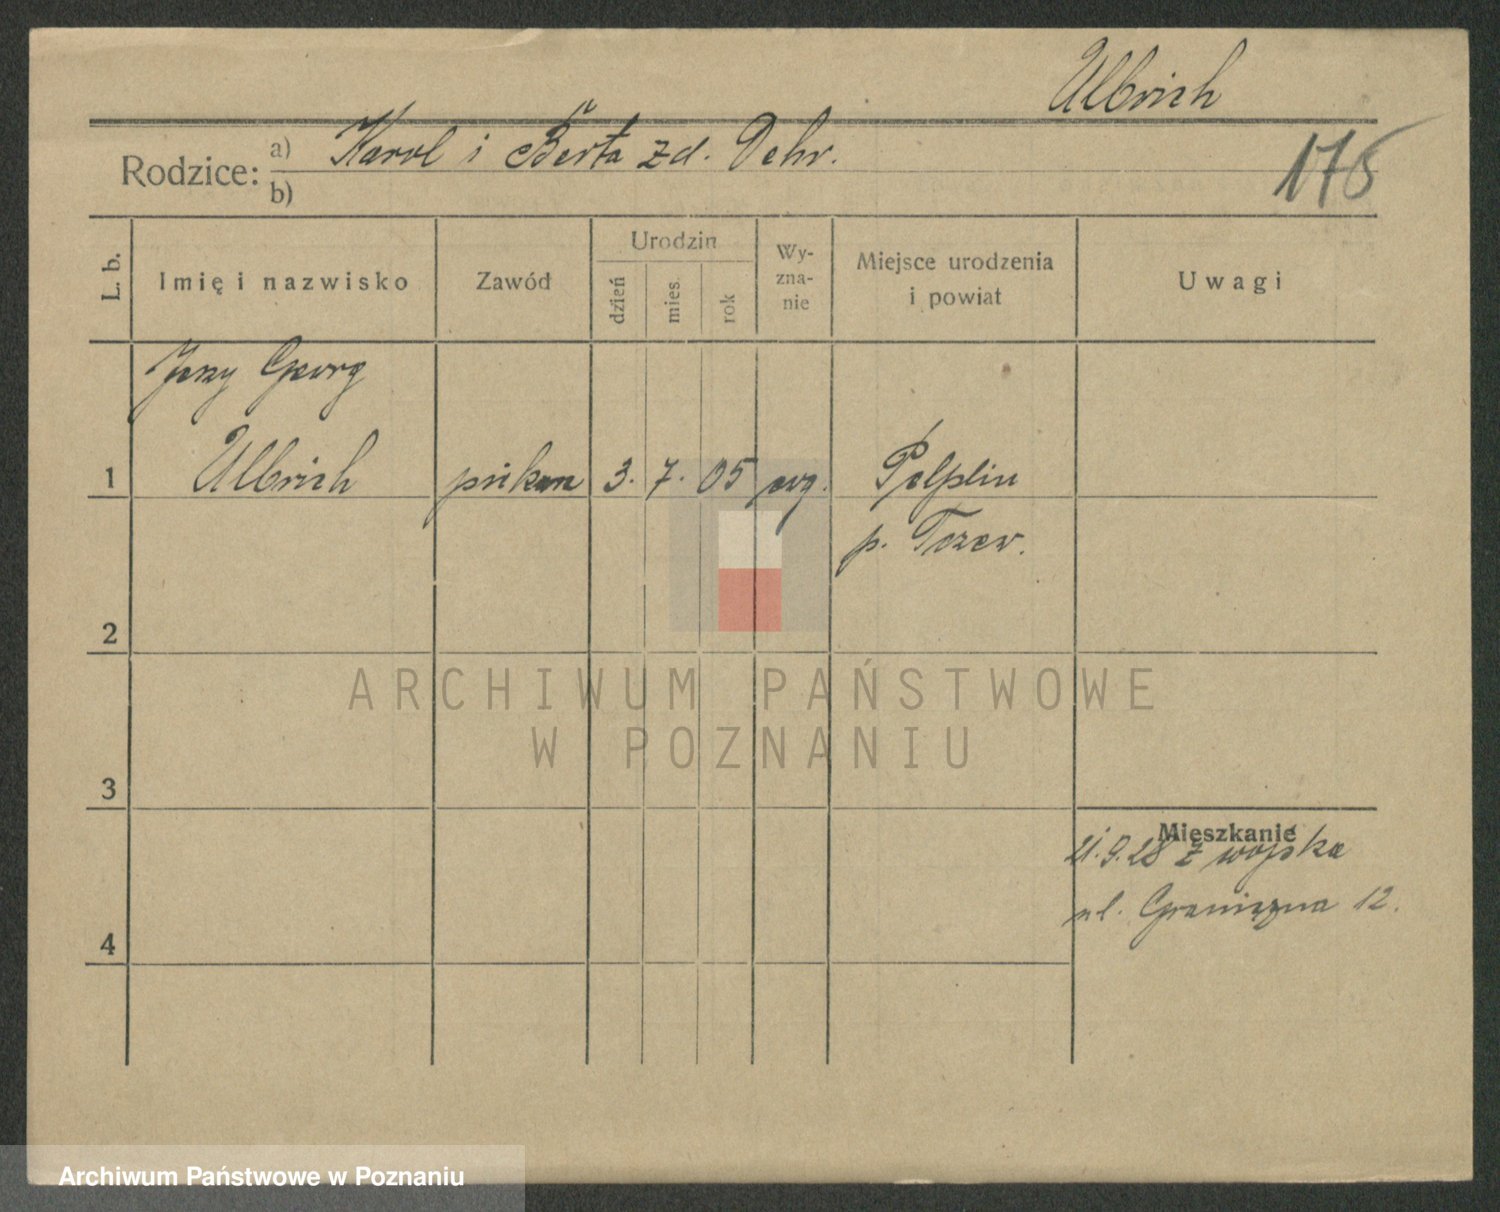 Ulbrich
Rodzice: a) Karol i Berta zd. Dehr.
b)
176
L. b. Imię i nazwisko Zawód Urodzin dzień mies. rok Wy-zna-nie Miejsce urodzenia i powiat Uwagi
Jerzy Georg
1 Ulbrich piekarz 3. 7. 05 ewg. Pelplin
p. Tczew.
2
3
Mieszkanie
21.9.28 z wojska
ul. Graniczna 12.
4
ARCHIWUM PAŃSTWOWE
W POZNANIU
Archiwum Państwowe w Poznaniu